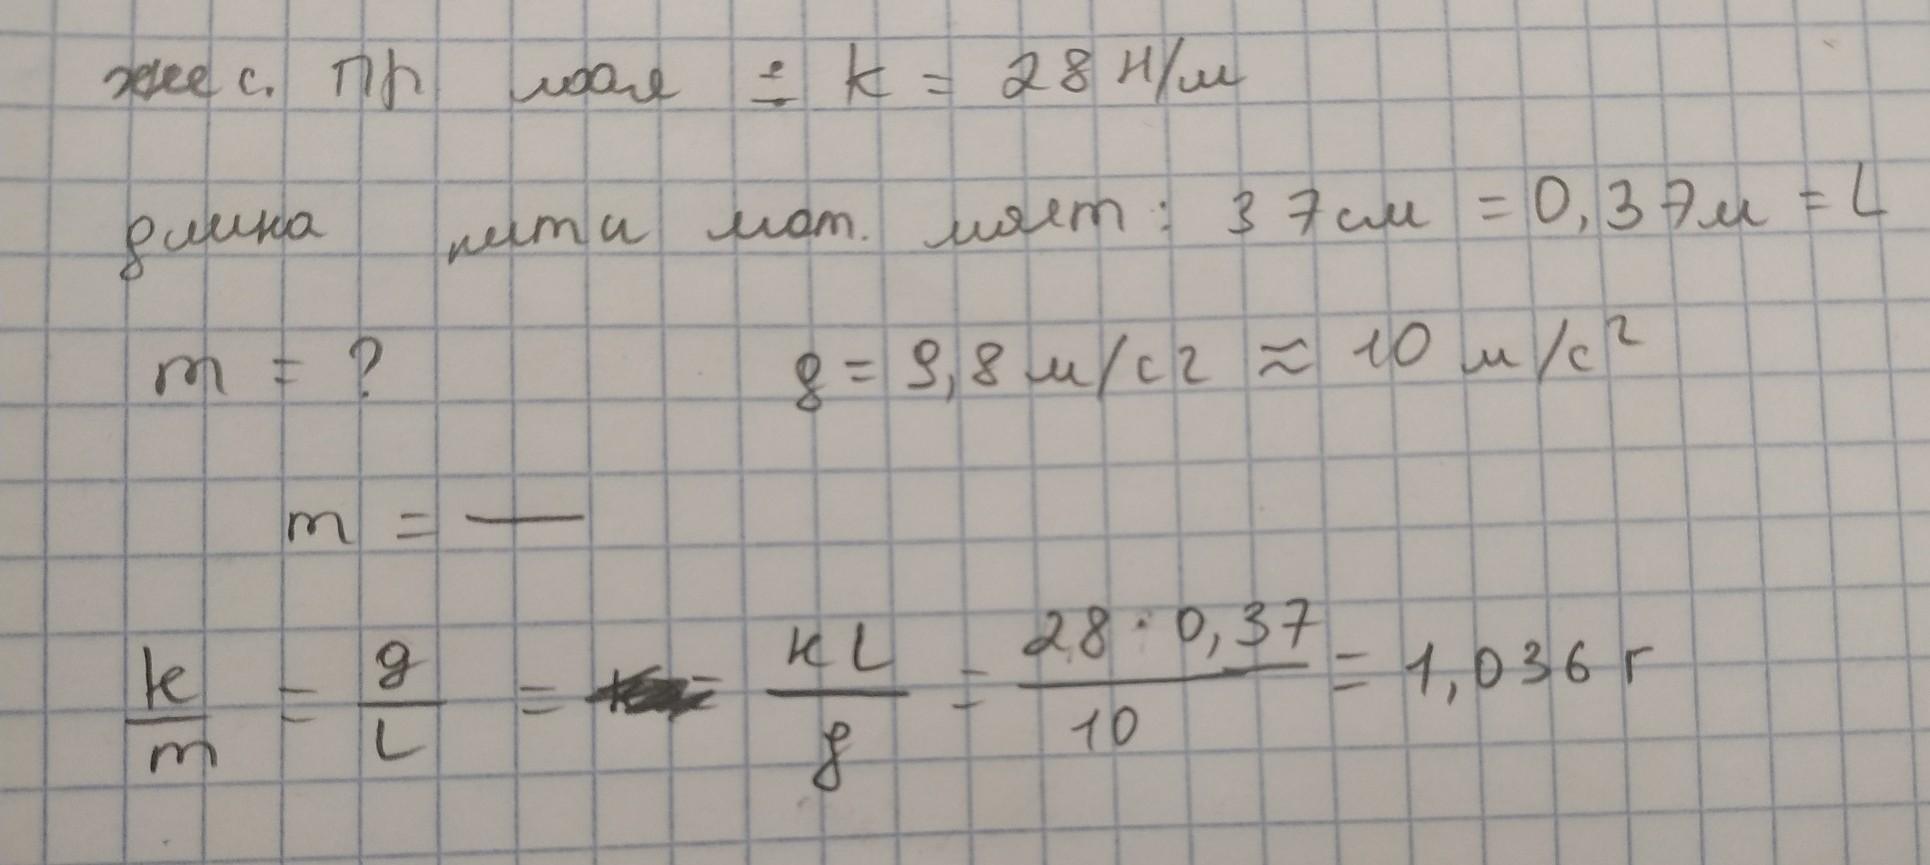 жес. пр маят = k = 28 Н/м
длина нити мат. маят: 37см = 0,37м = L
m = ?     g = 9,8 м/с2 ≈ 10 м/с²
m = —
k/m = g/L = = kL/g = 28·0,37/10 = 1,036 г